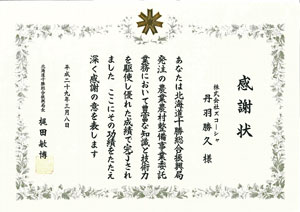 感謝状
株式会社ズコーシャ
丹羽勝久 様
あなたは北海道十勝総合振興局
発注の農業農村整備事業委託
業務において豊富な知識と技術力
を駆使し優れた成績で完了され
ました ここにその功績をたたえ
深く感謝の意を表します
平成二十九年三月八日
北海道十勝総合振興局長
梶田敏博